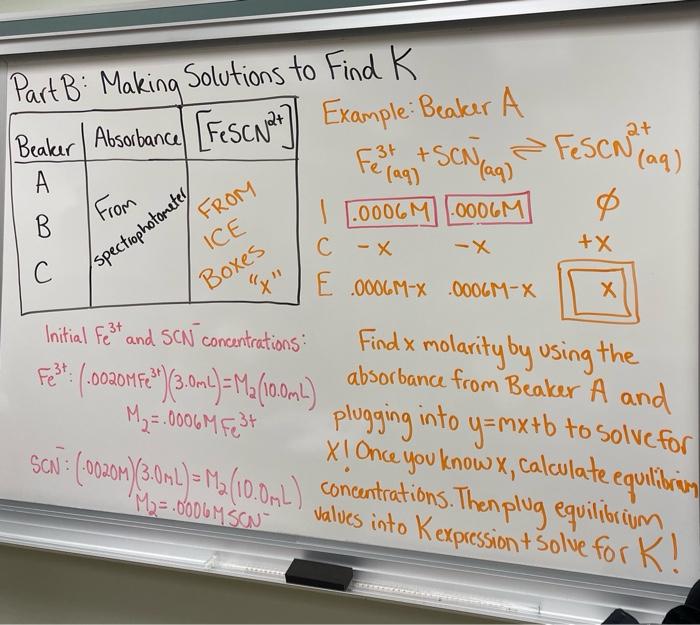 Part B: Making Solutions to Find K
Beaker Absorbance [FeSCN²⁺]
A
B
C
From spectrophotometer
FROM
ICE
Boxes
"x"
Example: Beaker A
Fe³⁺(aq) + SCN⁻(aq) ⇌ FeSCN²⁺(aq)
I .0006M .0006M ∅
C -x -x +x
E .0006M-x .0006M-x x
Initial Fe³⁺ and SCN⁻ concentrations:
Fe³⁺: (.0020M Fe³⁺)(3.0mL)=M₂(10.0mL)
M₂=.0006M Fe³⁺
SCN⁻: (.0020M)(3.0mL)=M₂(10.0mL)
M₂=.0006M SCN⁻
Find x molarity by using the
absorbance from Beaker A and
plugging into y=mx+b to solve for
X! Once you know x, calculate equilibrium
concentrations. Then plug equilibrium
values into K expression + solve for K!